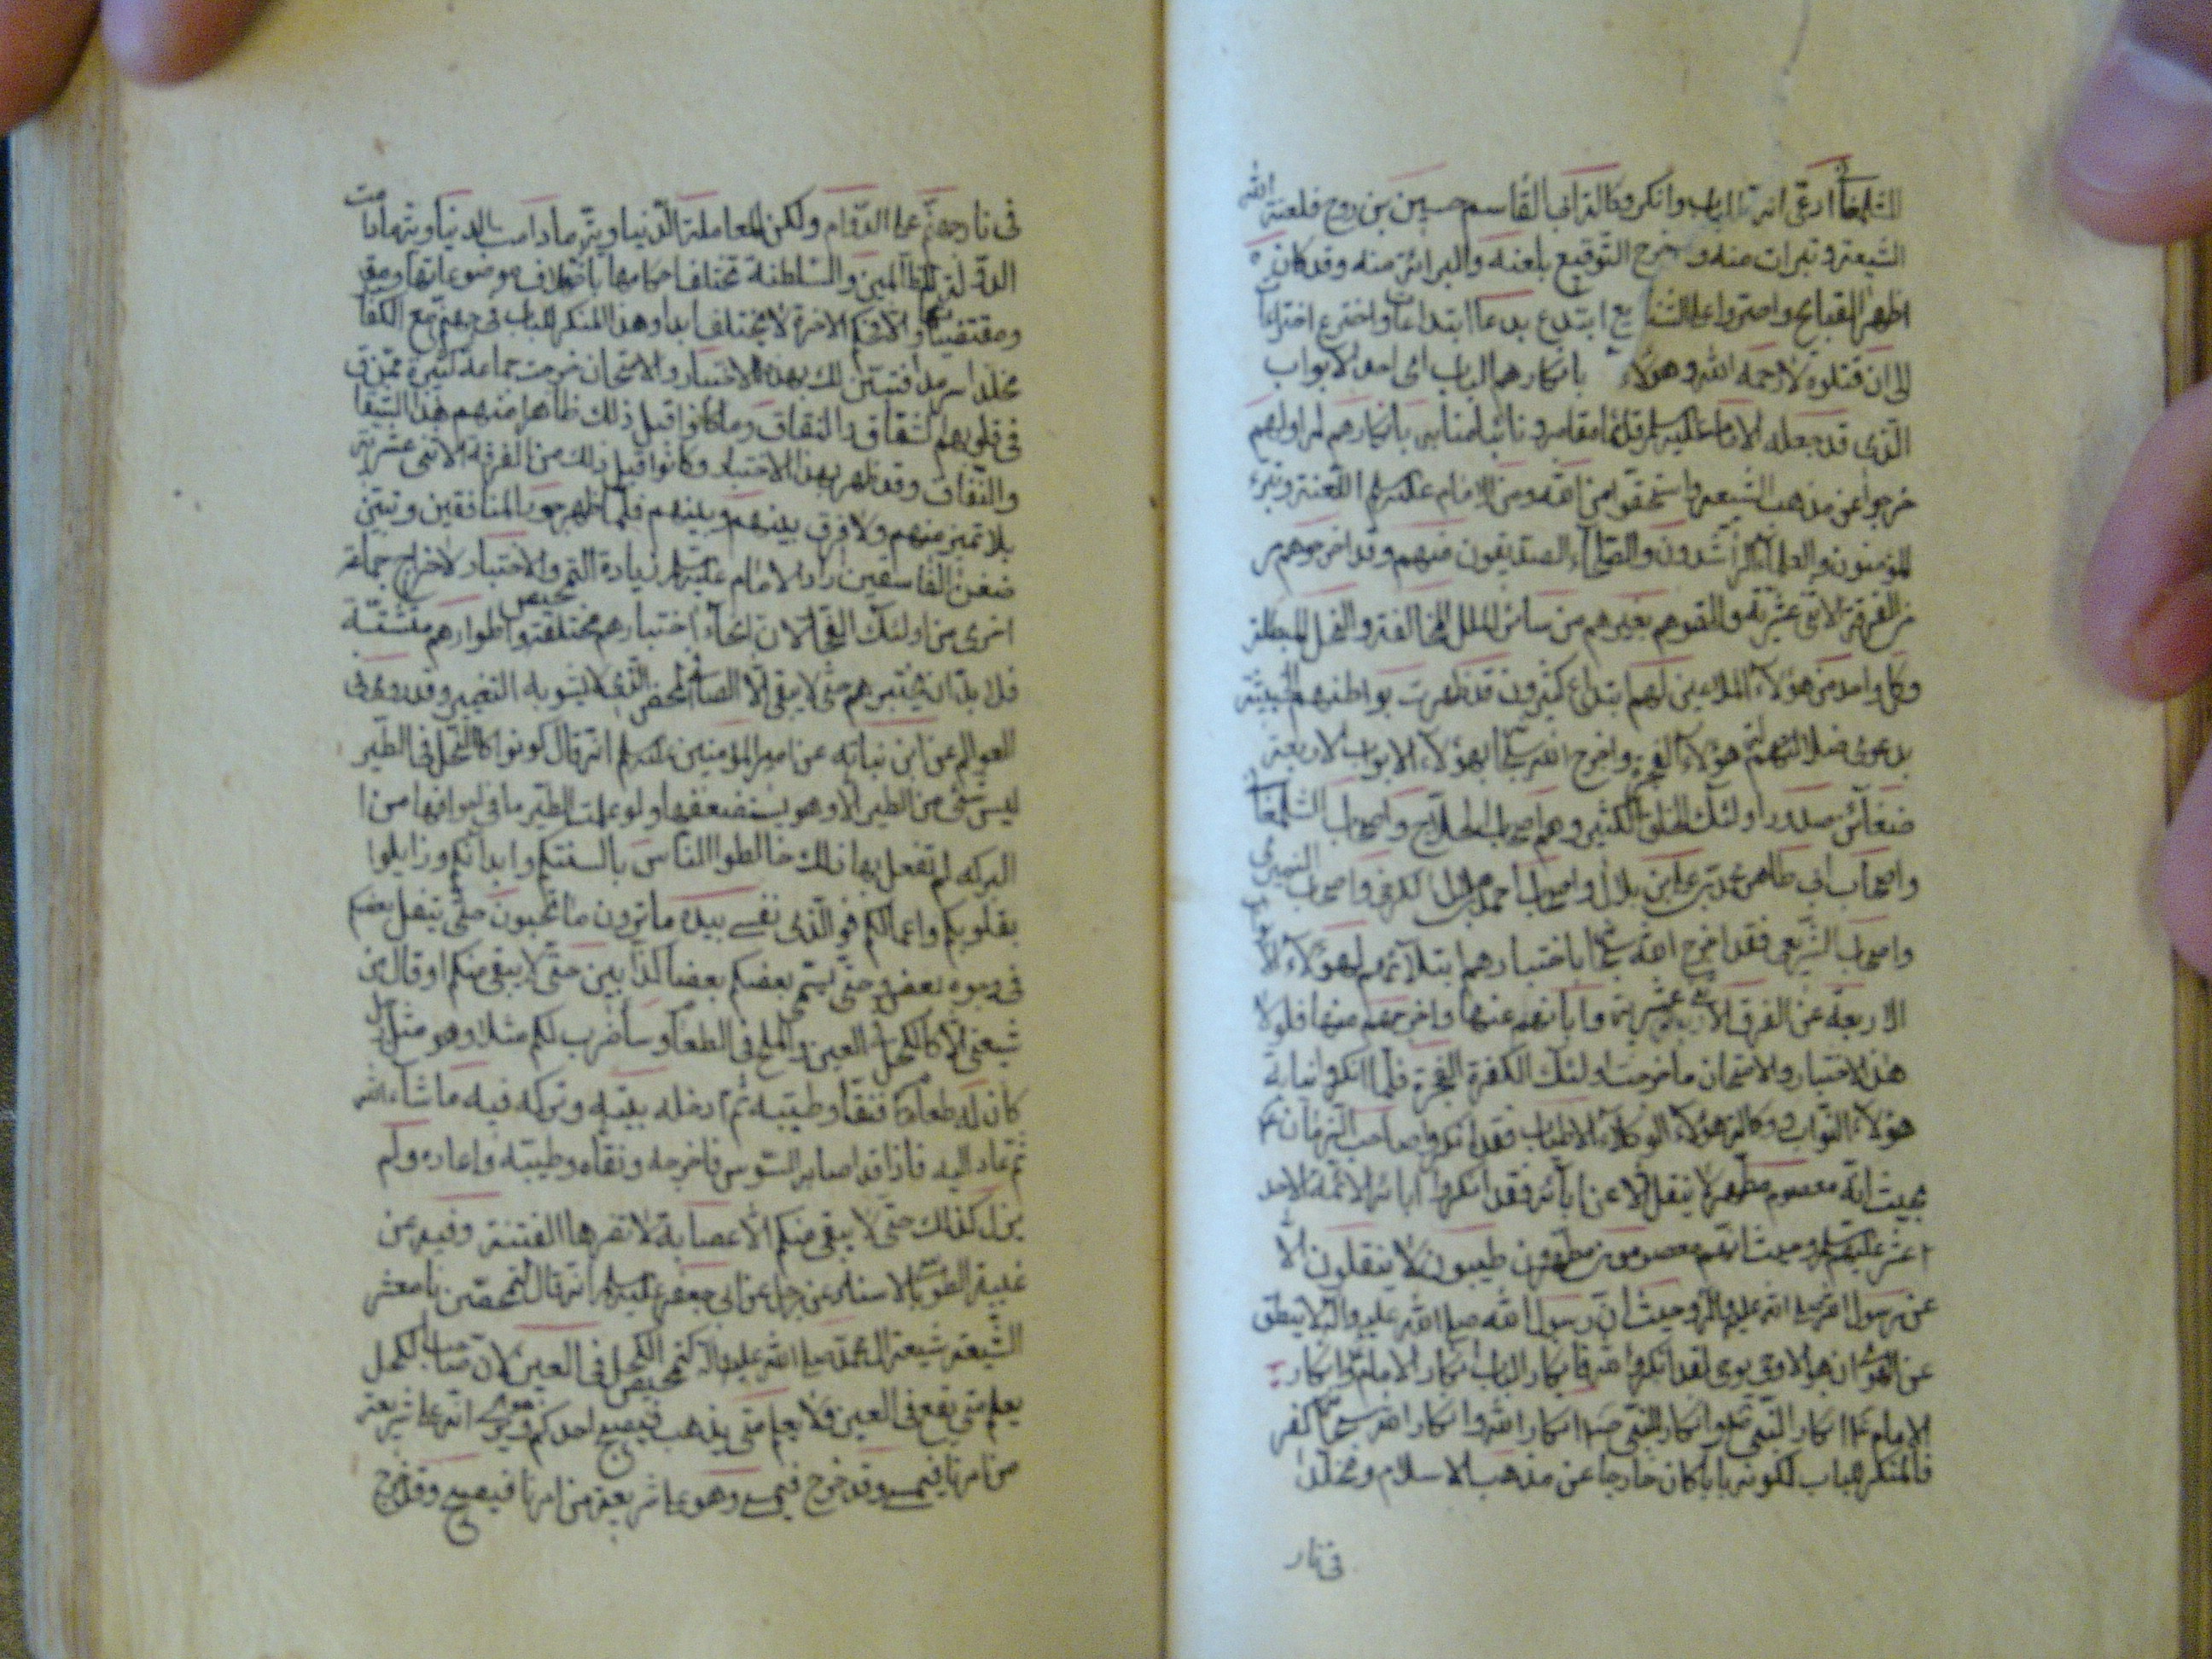 الشلمغانى ادعى انه الباب وانكر وكالة ابى القاسم حسين بن روح فلعنته
الشيعة وتبرات منه وخرج التوقيع بلعنه والبرائة منه وقد كان
اظهر القبايح واصروا على الشنايع ابتدع بدعا ابتداعات واخترع اختراعات
الى ان قتلوه لا رحمه الله وهؤلاء بانكارهم الباب اى احد الابواب
الذى قد جعله الامام عليه السلام قائما مقامه ونائبا منابه بانكارهم
خرجوا عن مذهب الشيعة واستحقوا من الله ومن الامام عليه السلم اللعنة وتبرء
المؤمنون والعلماء الراشدون والصلحاء الصديقون منهم وقد اخرجوهم
من الفرقة الاثنى عشرية والقوهم بغيرهم من سائر الملل المخالفة والنحل المبطلة
وكل واحد من هؤلاء الملاعين لهم ابتداع كثيرون قد ظهرت بواطنهم الخبيثة
بدعوى ضلالتهم هؤلاء واخرج الله بهؤلاء الابواب الاربعة
ضغائن صدور اولئك الخلق الكثير وهم اصحاب الحلاج واصحاب الشلمغانى
واصحاب ابى طاهر محمد بن على بن بلال واصحاب احمد بن هلال الكرخى واصحاب النميرى
واصحاب الشريعى فقد اخرج الله باختبارهم ابتلائهم لهؤلاء
الاربعة عن الفرق الاثنى عشرية وابانهم عنها واخرجهم منها فلولا
هذا الاختبار والامتحان ما خرجت اولئك الكفرة الفجرة فلما انكروا نيابة
هؤلاء النواب ووكالة هؤلاء الوكلاء الاطياب فقد انكروا صاحب الزمان
بحيث انه معصوم مطهر لا ينقل الا عن ابائه فقد انكروا ابائه الائمة الاحد
عشر عليهم السلم وحيث انهم معصومون مطهرون طيبون لا ينقلون الا
عن رسول الله صلى الله عليه واله وحيث ان رسول الله صلى الله عليه واله لا ينطق
عن الهوى ان هو الا وحى يوحى لقد انكروا الله فانكار الباب انكار الامام وانكار
الامام انكار النبى وانكار النبى انكار الله وانكار الله كفر
فالمنكر للباب لكونه بابا كان خارجا عن مذهب الاسلام ومخلدا
فى نار
فى نار جهنم على الدوام ولكن المعاملة الدنياوية ما دامت الدنيا وتهامات
الدولة للظالمين والسلطنة تختلف احكامها باختلاف موضوعاتها
ومقتضياتها والحكم الاخرة لا يختلف ابدا وهذا المنكر للباب فى جهنم مع الكفار
مخلد اسرمدا فتبين لك بهذه الاختبار والامتحان خرجت جماعة كثيرة ممن
فى قلوبهم الشقاق والنفاق وما كانوا قبل ذلك ظاهرا منهم هذا الشقاق
والنفاق وقد ظهر بهذا الاختبار وكانوا قبل ذلك من الفرقة الاثنى عشرية
بلا تميز منهم ولا فرق بينهم وبينهم فلما ظهر المنافقين وتبين
ضغن الفاسقين اراد الامام عليه السلم زيادة التمحيص والاختبار لاخراج جماعة
اخرى من اولئك لان انحاء اختبارهم مختلفة واطوارهم متشتتة
فلا بد ان يختبرهم حتى لا يبقى الا الصافى المحض الذى لا يشوبه التغيير وقد روى فى
العوالم عن ابن نباته عن امير المؤمنين عليه السلم انه قال كونوا كالنحل فى الطير
ليس شئ من الطير الا وهو يستضعفها ولو علمت الطير ما فى اجوافها من
البركه لم تفعل بها ذلك خالطوا الناس بالسنتكم وابدانكم وزايلوا
بقلوبكم واعمالكم فوالذى نفسى بيده ما ترون ما تحبون حتى يتفل بعضكم
فى وجوه بعض وحتى يسمى بعضكم بعضا كذابين حتى لا يبقى منكم او قال من
شيعتى الا كالكحل فى العين والملح فى الطعام وساضرب لكم مثلا وهو مثل رجل
كان له طعام فنقاه وطيبه ثم ادخله بيته وتركه فيه ما شاء الله
ثم عاد اليه فاذا قد اصابه السوس فاخرجه ونقاه وطيبه واعاده ولم
يزل كذلك حتى لا يبقى منكم الا عصابة لا تضرها الفتنة وفيه عن
غيبة الطوسى بالاسناد عن رجل عن ابى جعفر عليه السلم انه قال لتمحصن يا معشر
الشيعة شيعة ال محمد صلى الله عليه واله كتمحيص الكحل فى العين لان صاحب الكحل
يعلم متى يقع فى العين ولا يعلم متى يذهب فيصبح احدكم وهو يرى انه على شريعة
من امرنا فيمسى وقد خرج فيمسى وهو على شريعة من امرنا فيصبح وقد خرج